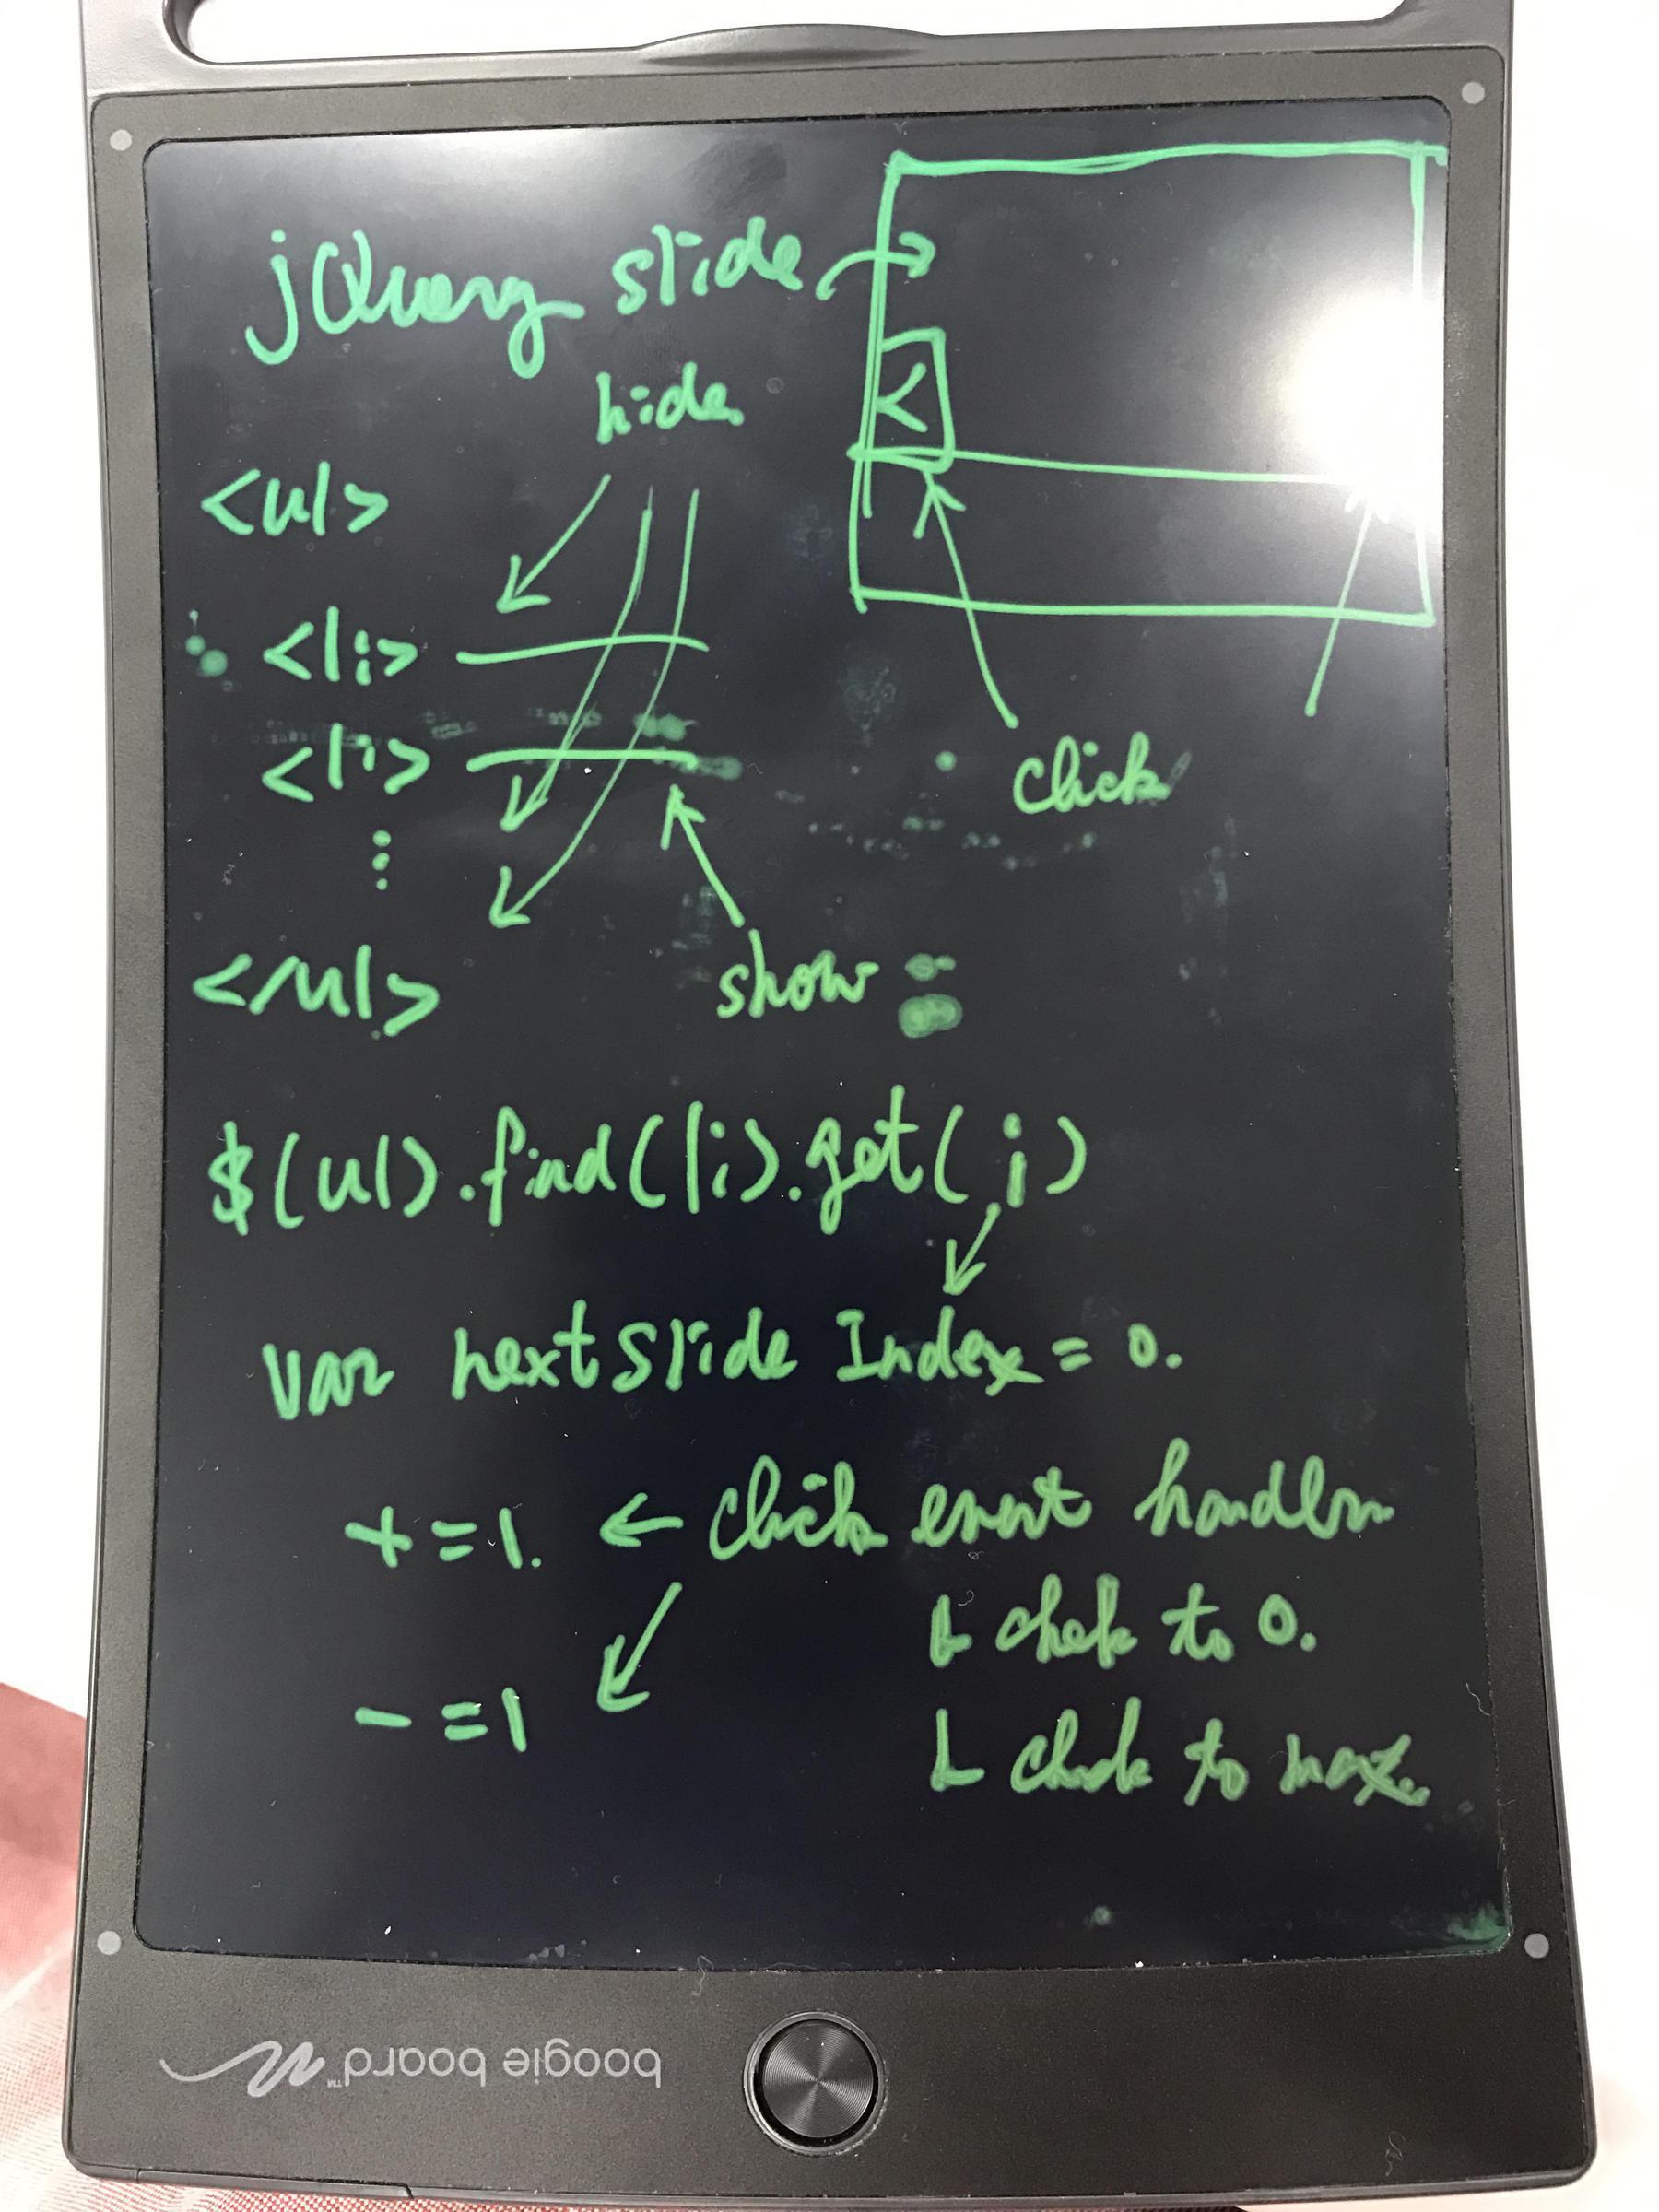 jQuery slide
hide
<
<ul>
<li>
<li>
click
⋮
</ul>
show
$(ul).find(li).get(i)
var nextslide Index = 0.
+=1. ← click event handler
└ chek to 0.
-=1
└ chek to max.
boogie board™